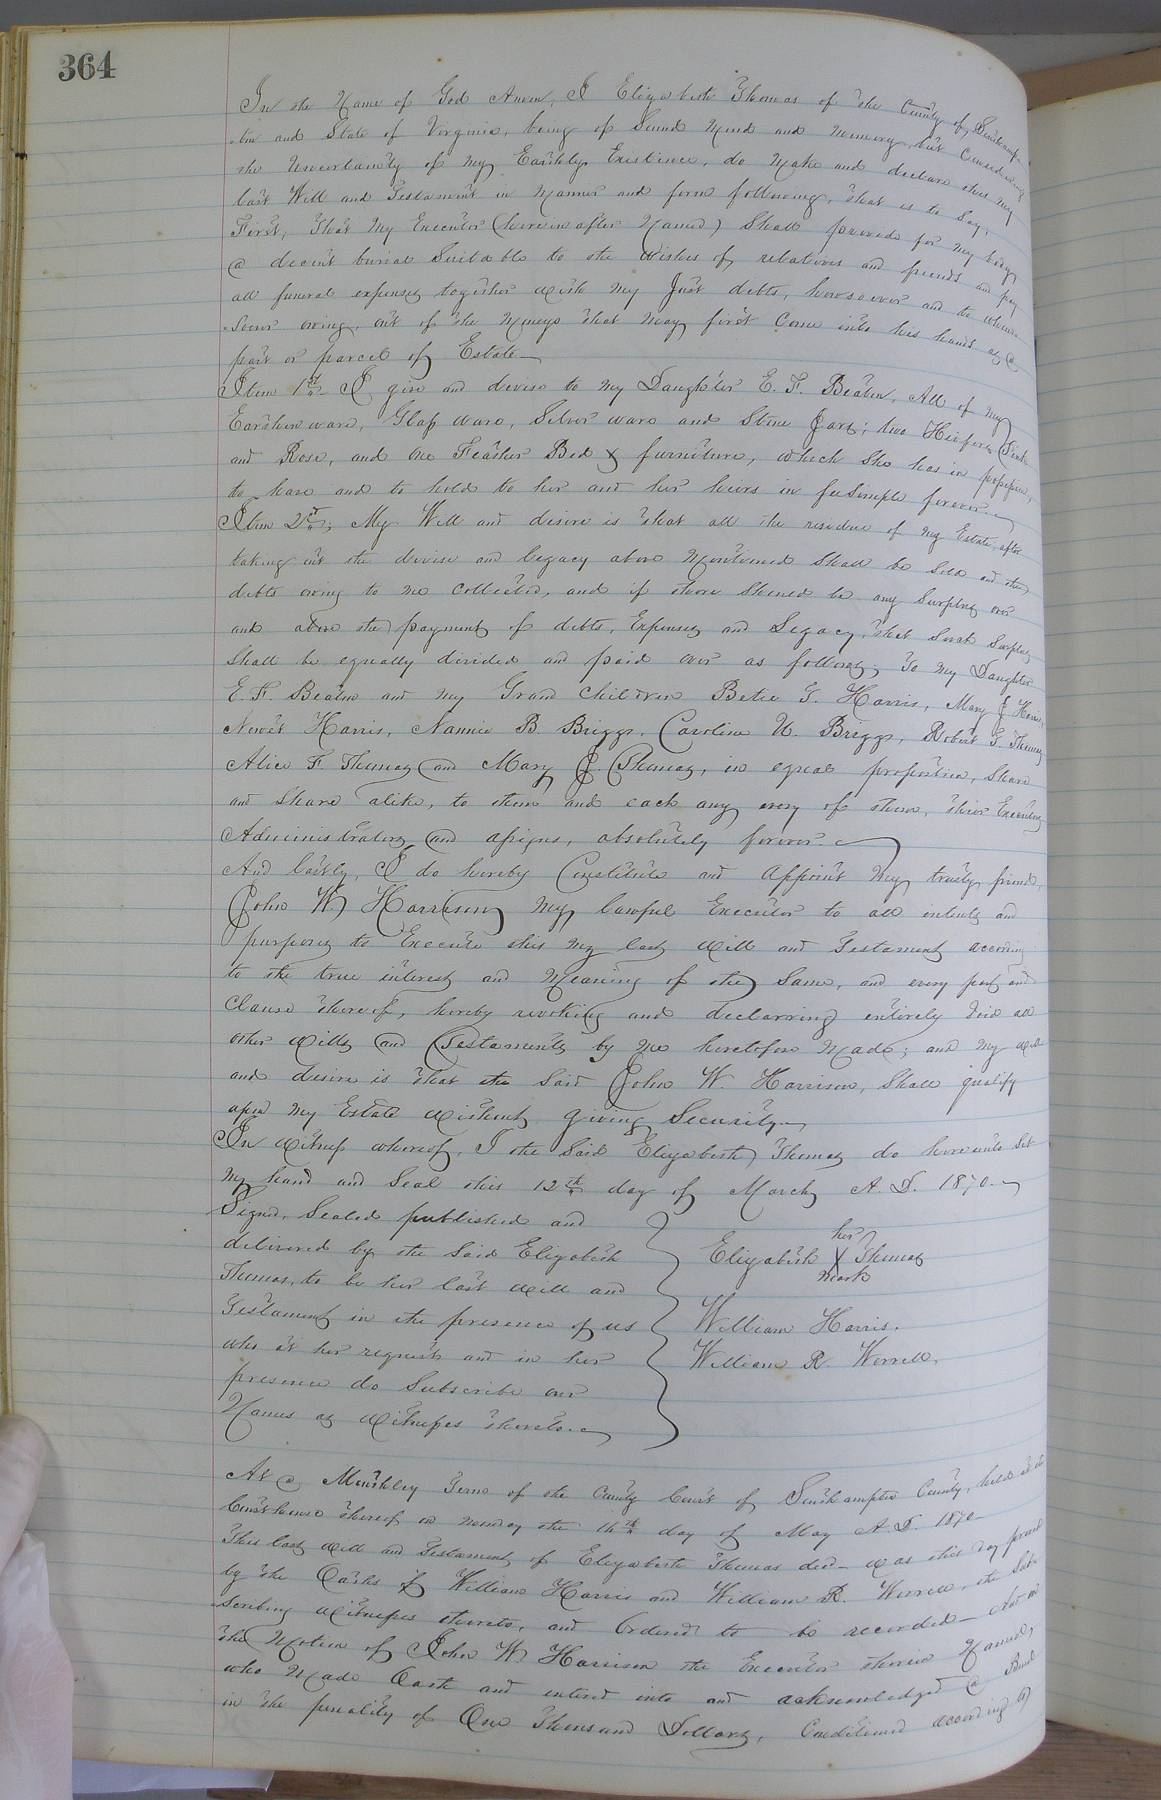 364
In the Name of God Amen, I Elizabeth Thomas of the County of Southamp-
-ton and State of Virginia, being of Sound Mind and Memory, but Considering
the Uncertainty of my Earthly Existence, do Make and declare this my
last Will and Testament in Manner and form following, that is to Say;
First, That My Executor (hereinafter Named) Shall provide for my body
a decent burial Suitable to the wishes of relatives and friends and pay
all funeral expenses together with my Just debts, howsoever and to whom-
-soever owing, out of the Moneys that May first Come into his hands as a
part or parcel of Estate—
Item 1st I give and devise to my Daughter E. F. Beaton, All of my
Earthenware, Glass ware, Silver ware and Stone Jars; two Heifers (Pink
and Rose, and One Feather Bed & furniture, which She has in possession,
to have and to hold to her and her heirs in feeSimple forever.
Item 2nd; My Will and desire is that all the residue of my Estate, after
taking out the devise and legacy above Mentioned Shall be Sold and the
debts owing to me Collected, and if there Should be any Surplus over
and above the payment of debts, Expenses and Legacy, that Such Surplus
Shall be equally divided and paid over as follows; To My Daughter
E. F. Beaton and my Grand Children Betie G. Harris, Mary J Harris,
Newit Harris, Nannie B. Briggs, Caroline U. Briggs, Robert G. Thomas
Alice F. Thomas and Mary J Thomas, in equal proportion, Share
and Share alike, to them and each any every of them, their Executors
Administrators and assigns, absolutely forever.
And lastly, I do hereby Constitute and appoint My trusty friend,
John W. Harrison my lawful Executor to all intents and
purposes to Execute this my last Will and Testament according
to the true interest and Meaning of the Same, and every part and
Clause thereof, hereby revoking and declarring entirely Void all
other Wills and Testaments by Me heretofore Made; and my will
and desire is that the Said John W. Harrison, Shall qualify
upon My Estate without giving Security—
In witness whereof, I the Said Elizabeth Thomas do hereunto Set
My hand and Seal this 12th day of March A. D. 1870—
Signed, Sealed published and
delivered by the Said Elizabeth
Thomas, to be her last Will and
Testament in the presence of us
who at her request and in her
presence do Subscribe our
Names as Witnesses thereto.
her
Elizabeth X Thomas
mark
William Harris.
William R. Worrell.
At a Monthley Term of the County Court of Southampton County, held at the
Courthouse thereof on Monday the 16th day of May A. D. 1870—
This last Will and Testament of Elizabeth Thomas decd— was this day proved
by the Oaths of William Harris and William R. Worrell, the Sub-
-scribing Witnesses thereto, and Ordered to be recorded— And on
the Motion of John W Harrison the Executor therein Named,
who Made Oath and entered into and acknowledged a Bond
in the penality of One Thousand Dollars, Conditioned according to